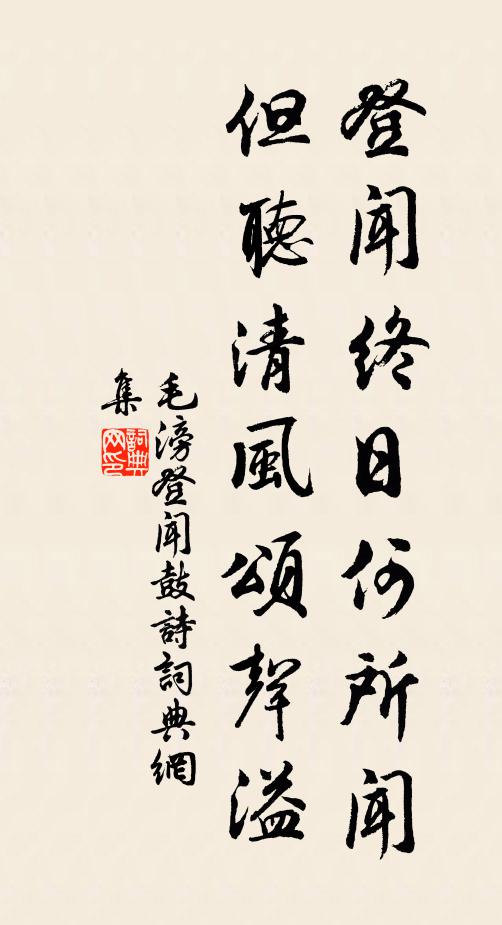 登聞終日何所聞
但聽清風頌聲溢
毛滂登聞鼓詩詞典網
集
詞典
网印